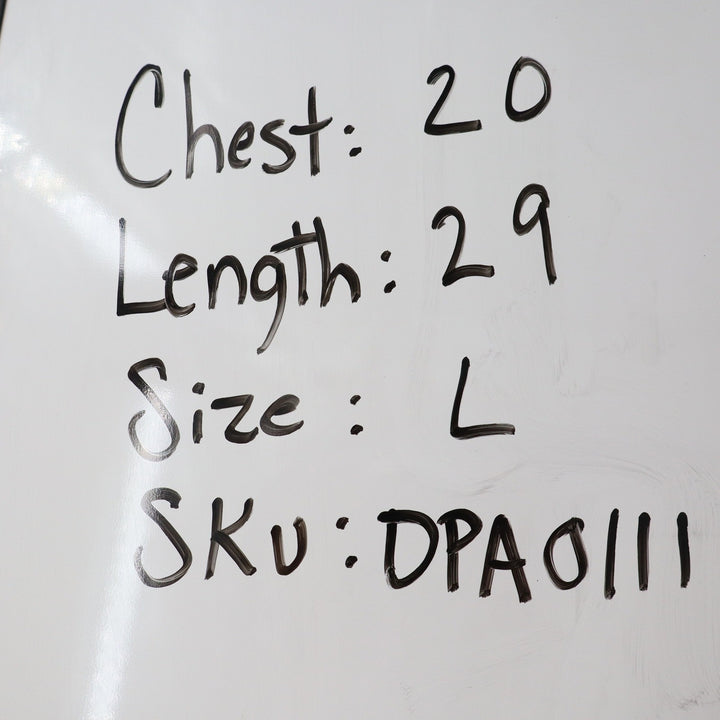 Chest: 20
Length: 29
Size: L
SKU: DPA0111